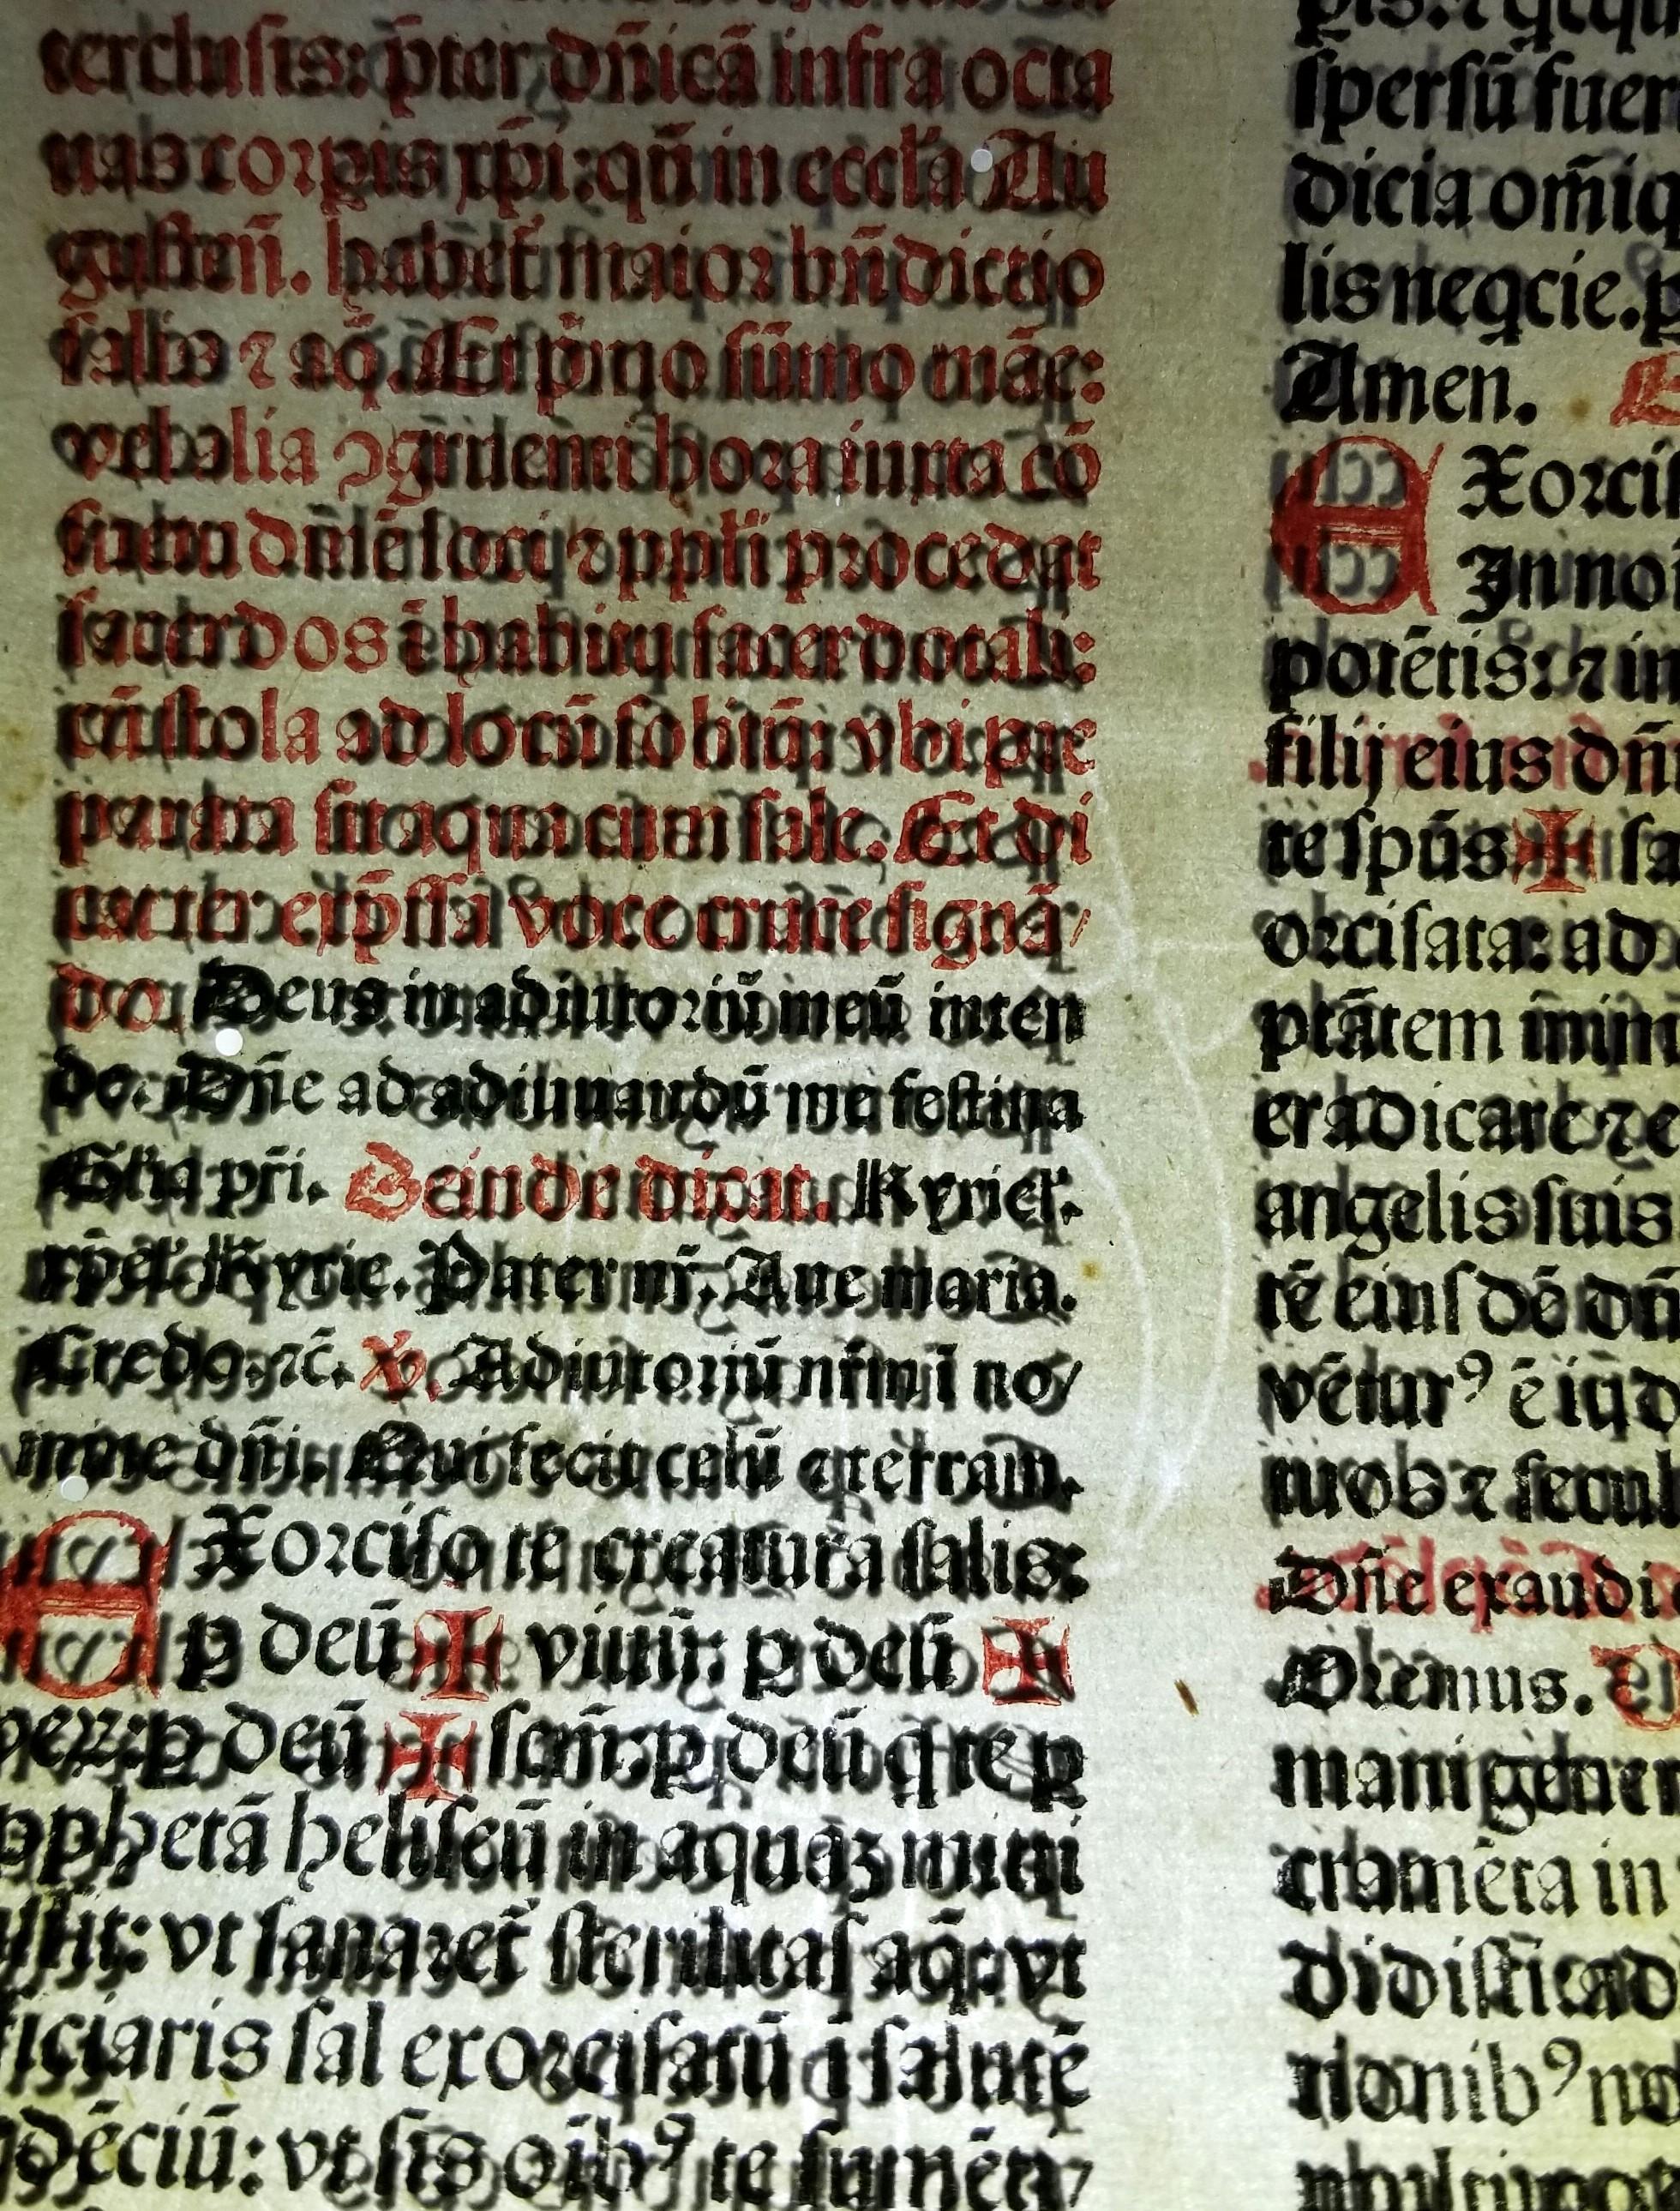 terclusis: p̄ter dn̄icā infra octa
uas corꝑis xp̄i: qn̄ in eccl'a Au
gusten̄. habet᷑ maior bn̄dictio
salis ⁊ aq̄. Et p̄mo sūmo māe:
vel alia ꝯgruenti hora iuxta cō
suetu dn̄iē loci ⁊ ppl'i procedat
sacerdos ī habitu sacerdotali:
cū stola ad locū solitū: vbi pre
parata sit aqua cum sale. Et di
cat ter exp̄ssa voce cruce signā/
do. Deus in adiutoriū meū inten
de. Dn̄e ad adiuuandū me festina
Gl'ia pr̄i. Deinde dicat. Kyriel'.
xp̄el'. Kyrie. Pater nr̄. Aue maria.
Credo. ⁊c̄. ℣. Adiutoriū nr̄m ī no/
mine dn̄i. Qui fecit celū ⁊ terram.
EXorciso te creatura salis:
ꝑ deū ✠ viuū: ꝑ deū ✠
verꝝ: ꝑ deū ✠ scm̄: ꝑ deū q te ꝑ
ꝓphetā heliseū in aquaꝫ mitti
ussit: vt sanaret᷑ sterilitas aq̄: vt
ficiaris sal exorcisatū ī salutē
dēciū: vt sis oīb⁹ te sumētı/
ꝑis: ⁊ qcqu
spersū fuer
dicia om̄iq
lis neqcie. p
Amen.
EXorcis
In noı
potētis: ⁊ in
filij eius dn̄
te spūs ✠ sa
orcisata: ad
ptātem inim
eradicare ⁊ e
angelis suis
tē eiusdē dn̄
vētur⁹ ē iud
tuos ⁊ secul
Dn̄e exaudi
Oremus. D
mani gener
cramēta in
didisti: ad
tionib⁹ no